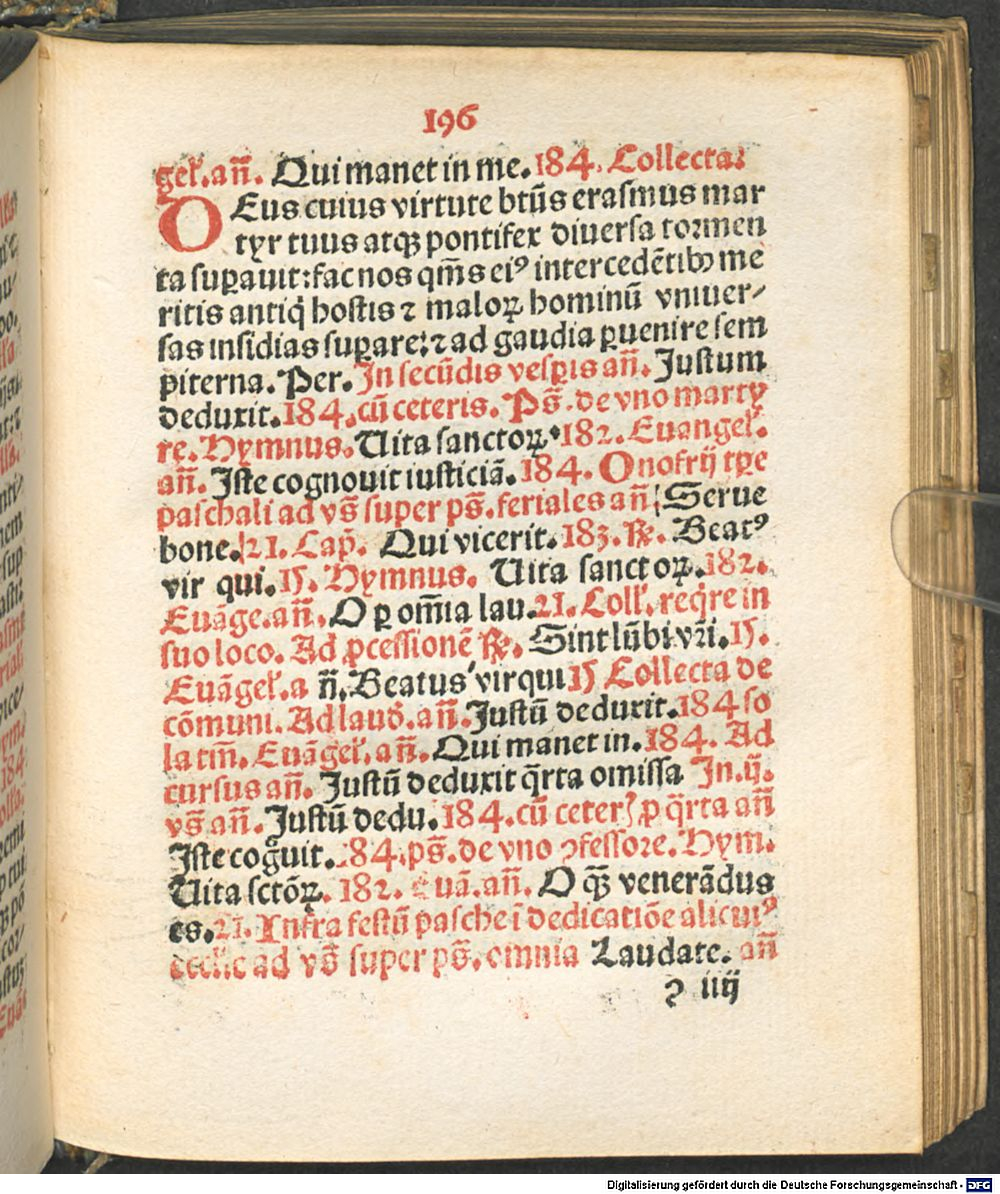 196
gel̕. an̄. Qui manet in me. 184. Collecta:
DEus cuius virtute btūs erasmus mar
tyr tuus atqꝫ pontifex diuersa tormen
ta suꝑauit: fac nos qm̄s eiꝰ intercedētibꝫ me
ritis antiq̇ hostis ⁊ maloꝝ hominū vniuer⸗
sas insidias suꝑare: ⁊ ad gaudia ꝑuenire sem
piterna. Per. In secūdis vesꝑis an̄. Justum
deduxit. 184. cū ceteris. Ps̄. de vno marty
re. Hymnus. Uita sanctoꝝ. 182. Euangel̕.
an̄. Iste cognouit iusticiā. 184. Onofrij tꝑe
paschali ad vs̄ super ps̄. feriales an̄ Serue
bone. 21. Cap̄. Qui vicerit. 183. ℟. Beatꝰ
vir qui. 15. Hymnus. Uita sanctoꝝ. 182.
Euāge. an̄. O ꝑ om̄ia lau. 21. Coll̕. req̇re in
suo loco. Ad ꝓcessionē ℟. Sint lūbi vr̄i. 15.
Euāgel̕. a n̄. Beatus vir qui 15 Collecta de
cōmuni. Ad laud̕. an̄. Justū deduxit. 184 so
la tm̄. Euāgel̕. an̄. Qui manet in. 184. Ad
cursus an̄. Justū deduxit q̄rta omissa In. ij.
vs̄ an̄. Justū dedu. 184. cū ceteꝭ ꝓ q̄rta an̄
Iste cog̊uit. 184. ps̄. de vno ꝯfessore. Hym.
Uita sctōꝝ. 182. Euā. an̄. O qꝫ̄ venerādus
es. 21. Infra festū pasche ī dedicatiōe alicuiꝰ
eccl̕ie ad vs̄ super ps̄. omnia Laudate. an̄
ꝛ iiij
Digitalisierung gefördert durch die Deutsche Forschungsgemeinschaft - DFG